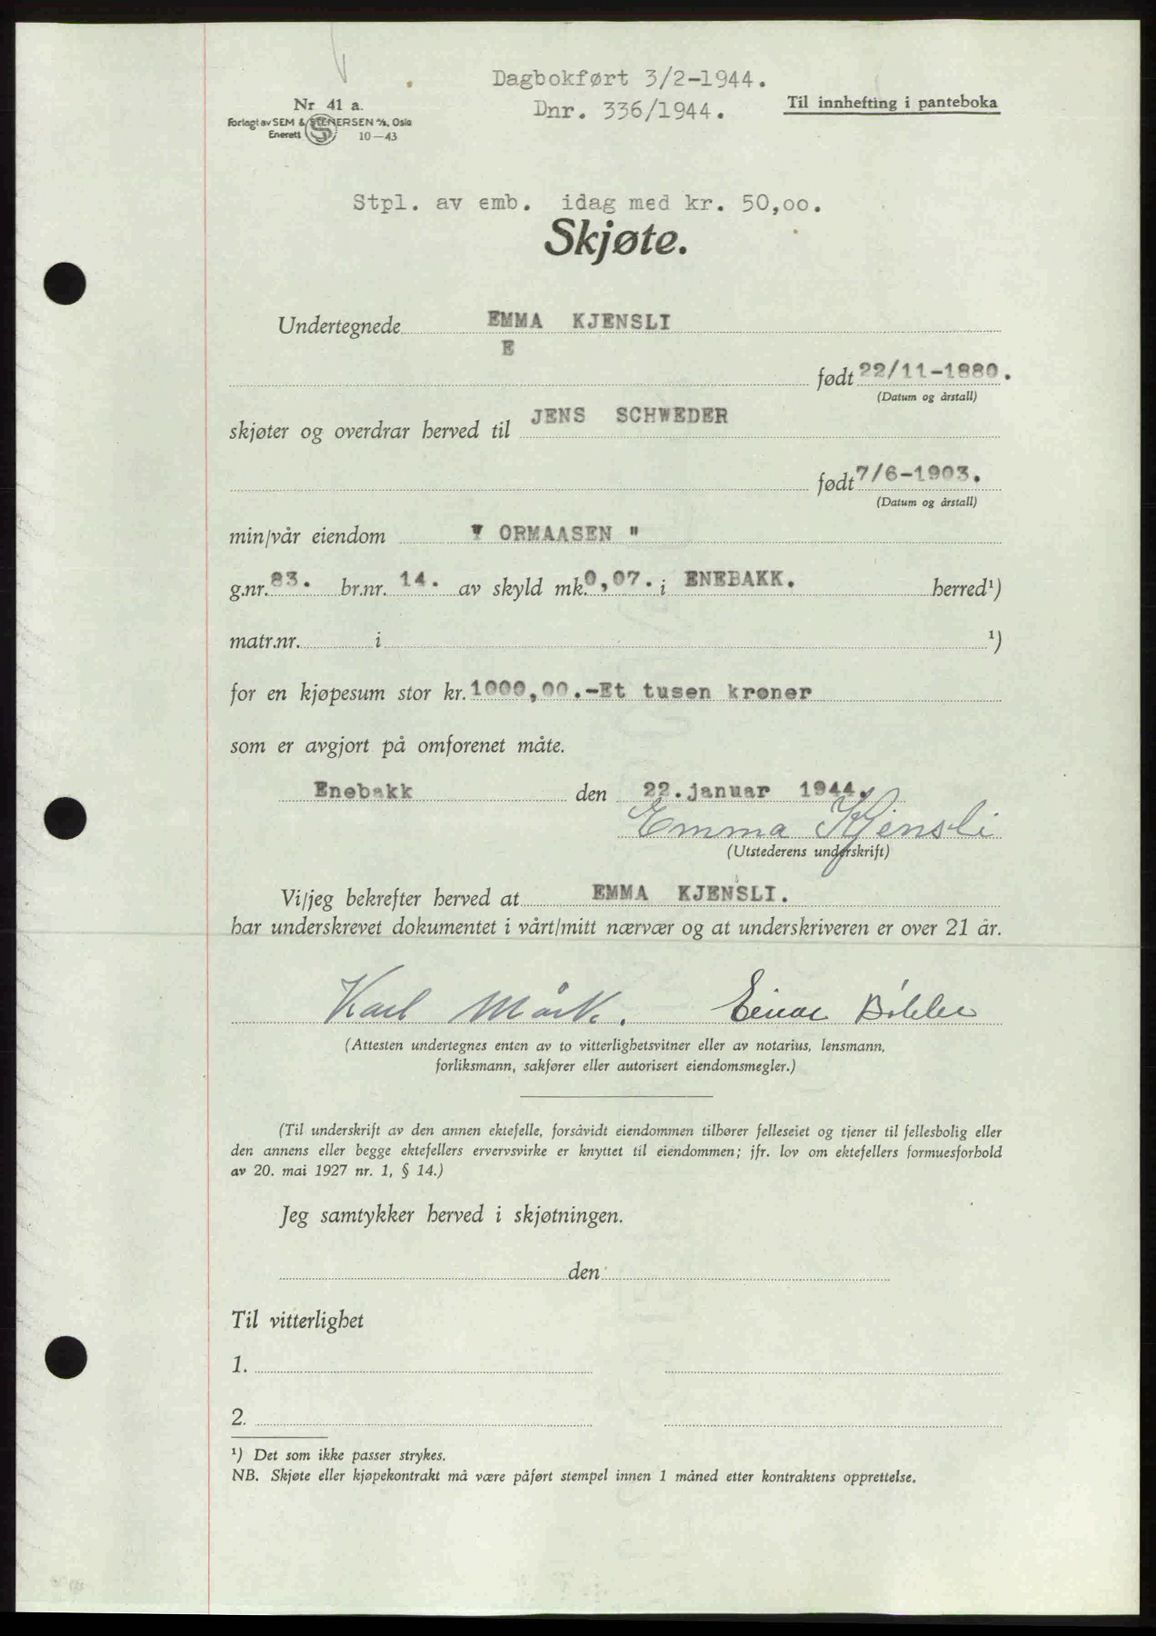 Dagbokført 3/2-1944.
Dnr. 336/1944.
Til innhefting i panteboka
Nr 41 a.
Forlagt av SEM & STENERSEN A/S, Oslo
Enerett 10-43
Stpl. av emb. idag med kr. 50,oo.
Skjøte.
Undertegnede EMMA KJENSLI
E
født 22/11-1880.
(Datum og årstall)
skjøter og overdrar herved til JENS SCHWEDER
født 7/6-1903.
(Datum og årstall)
min/vår eiendom " ORMAASEN "
g.nr. 83. br.nr. 14. av skyld mk. 0,07. i ENEBAKK. herred¹)
matr.nr. i ¹)
for en kjøpesum stor kr. 1000,00.-Et tusen kroner
som er avgjort på omforenet måte.
Enebakk den 22.januar 1944.
Emma Kjensli
(Utstederens underskrift)
Vi/jeg bekrefter herved at EMMA KJENSLI.
har underskrevet dokumentet i vårt/mitt nærvær og at underskriveren er over 21 år.
Karl Mårk. Einar
(Attesten undertegnes enten av to vitterlighetsvitner eller av notarius, lensmann,
forliksmann, sakfører eller autorisert eiendomsmegler.)
(Til underskrift av den annen ektefelle, forsåvidt eiendommen tilhører felleseiet og tjener til fellesbolig eller
den annens eller begge ektefellers ervervsvirke er knyttet til eiendommen; jfr. lov om ektefellers formuesforhold
av 20. mai 1927 nr. 1, § 14.)
Jeg samtykker herved i skjøtningen.
den
Til vitterlighet
1.
2.
¹) Det som ikke passer strykes.
NB. Skjøte eller kjøpekontrakt må være påført stempel innen 1 måned etter kontraktens opprettelse.